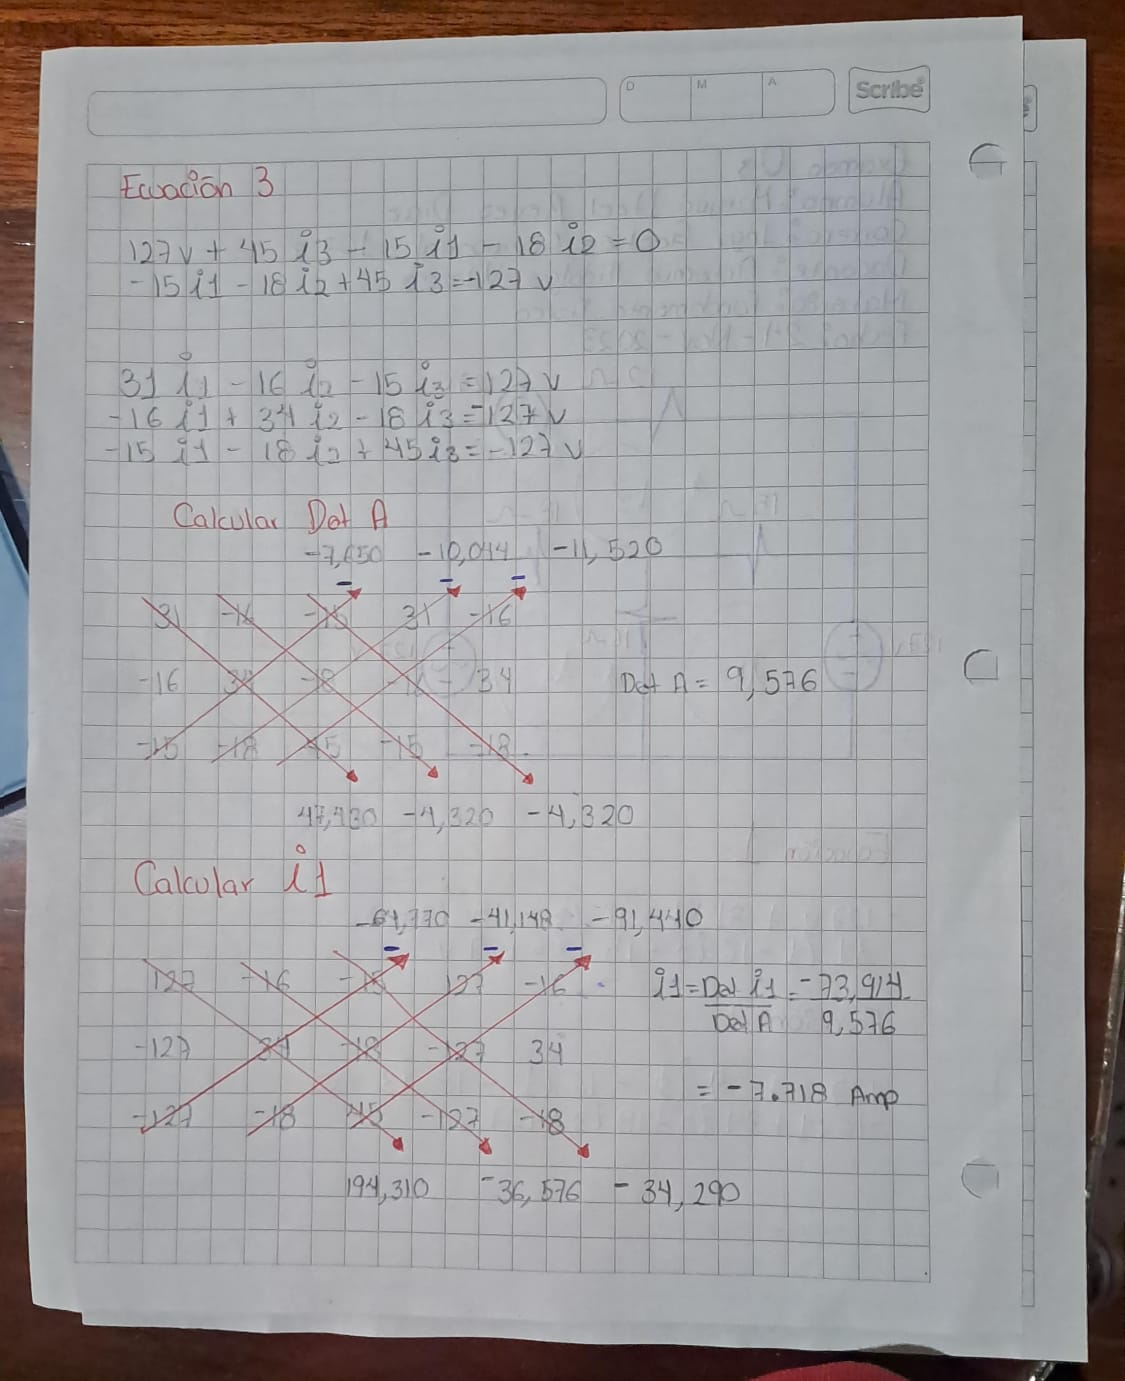 D M A Scribe
Ecuación 3
127v + 45 i3 - 15 i1 - 18 i2 = 0
-15 i1 - 18 i2 + 45 i3 = -127 v
31 i1 - 16 i2 - 15 i3 = 127 v
-16 i1 + 34 i2 - 18 i3 = -127 v
-15 i1 - 18 i2 + 45 i3 = -127 v
Calcular Det A
-7,650 -10,044 -11,520
- - -
31 -16 -15 31 -16
-16 34 -18 -16 34 Det A = 9,576
-15 -18 45 -15 -18
47,430 -4,320 -4,320
Calcular i1
-64,770 -41,148 -91,440
- - -
127 -16 -15 127 -16 i1 = Det i1 = -73,914
Det A 9,576
-127 34 -18 -127 34
= -7.718 Amp
-127 -18 45 -127 -18
194,310 -36,576 -34,290